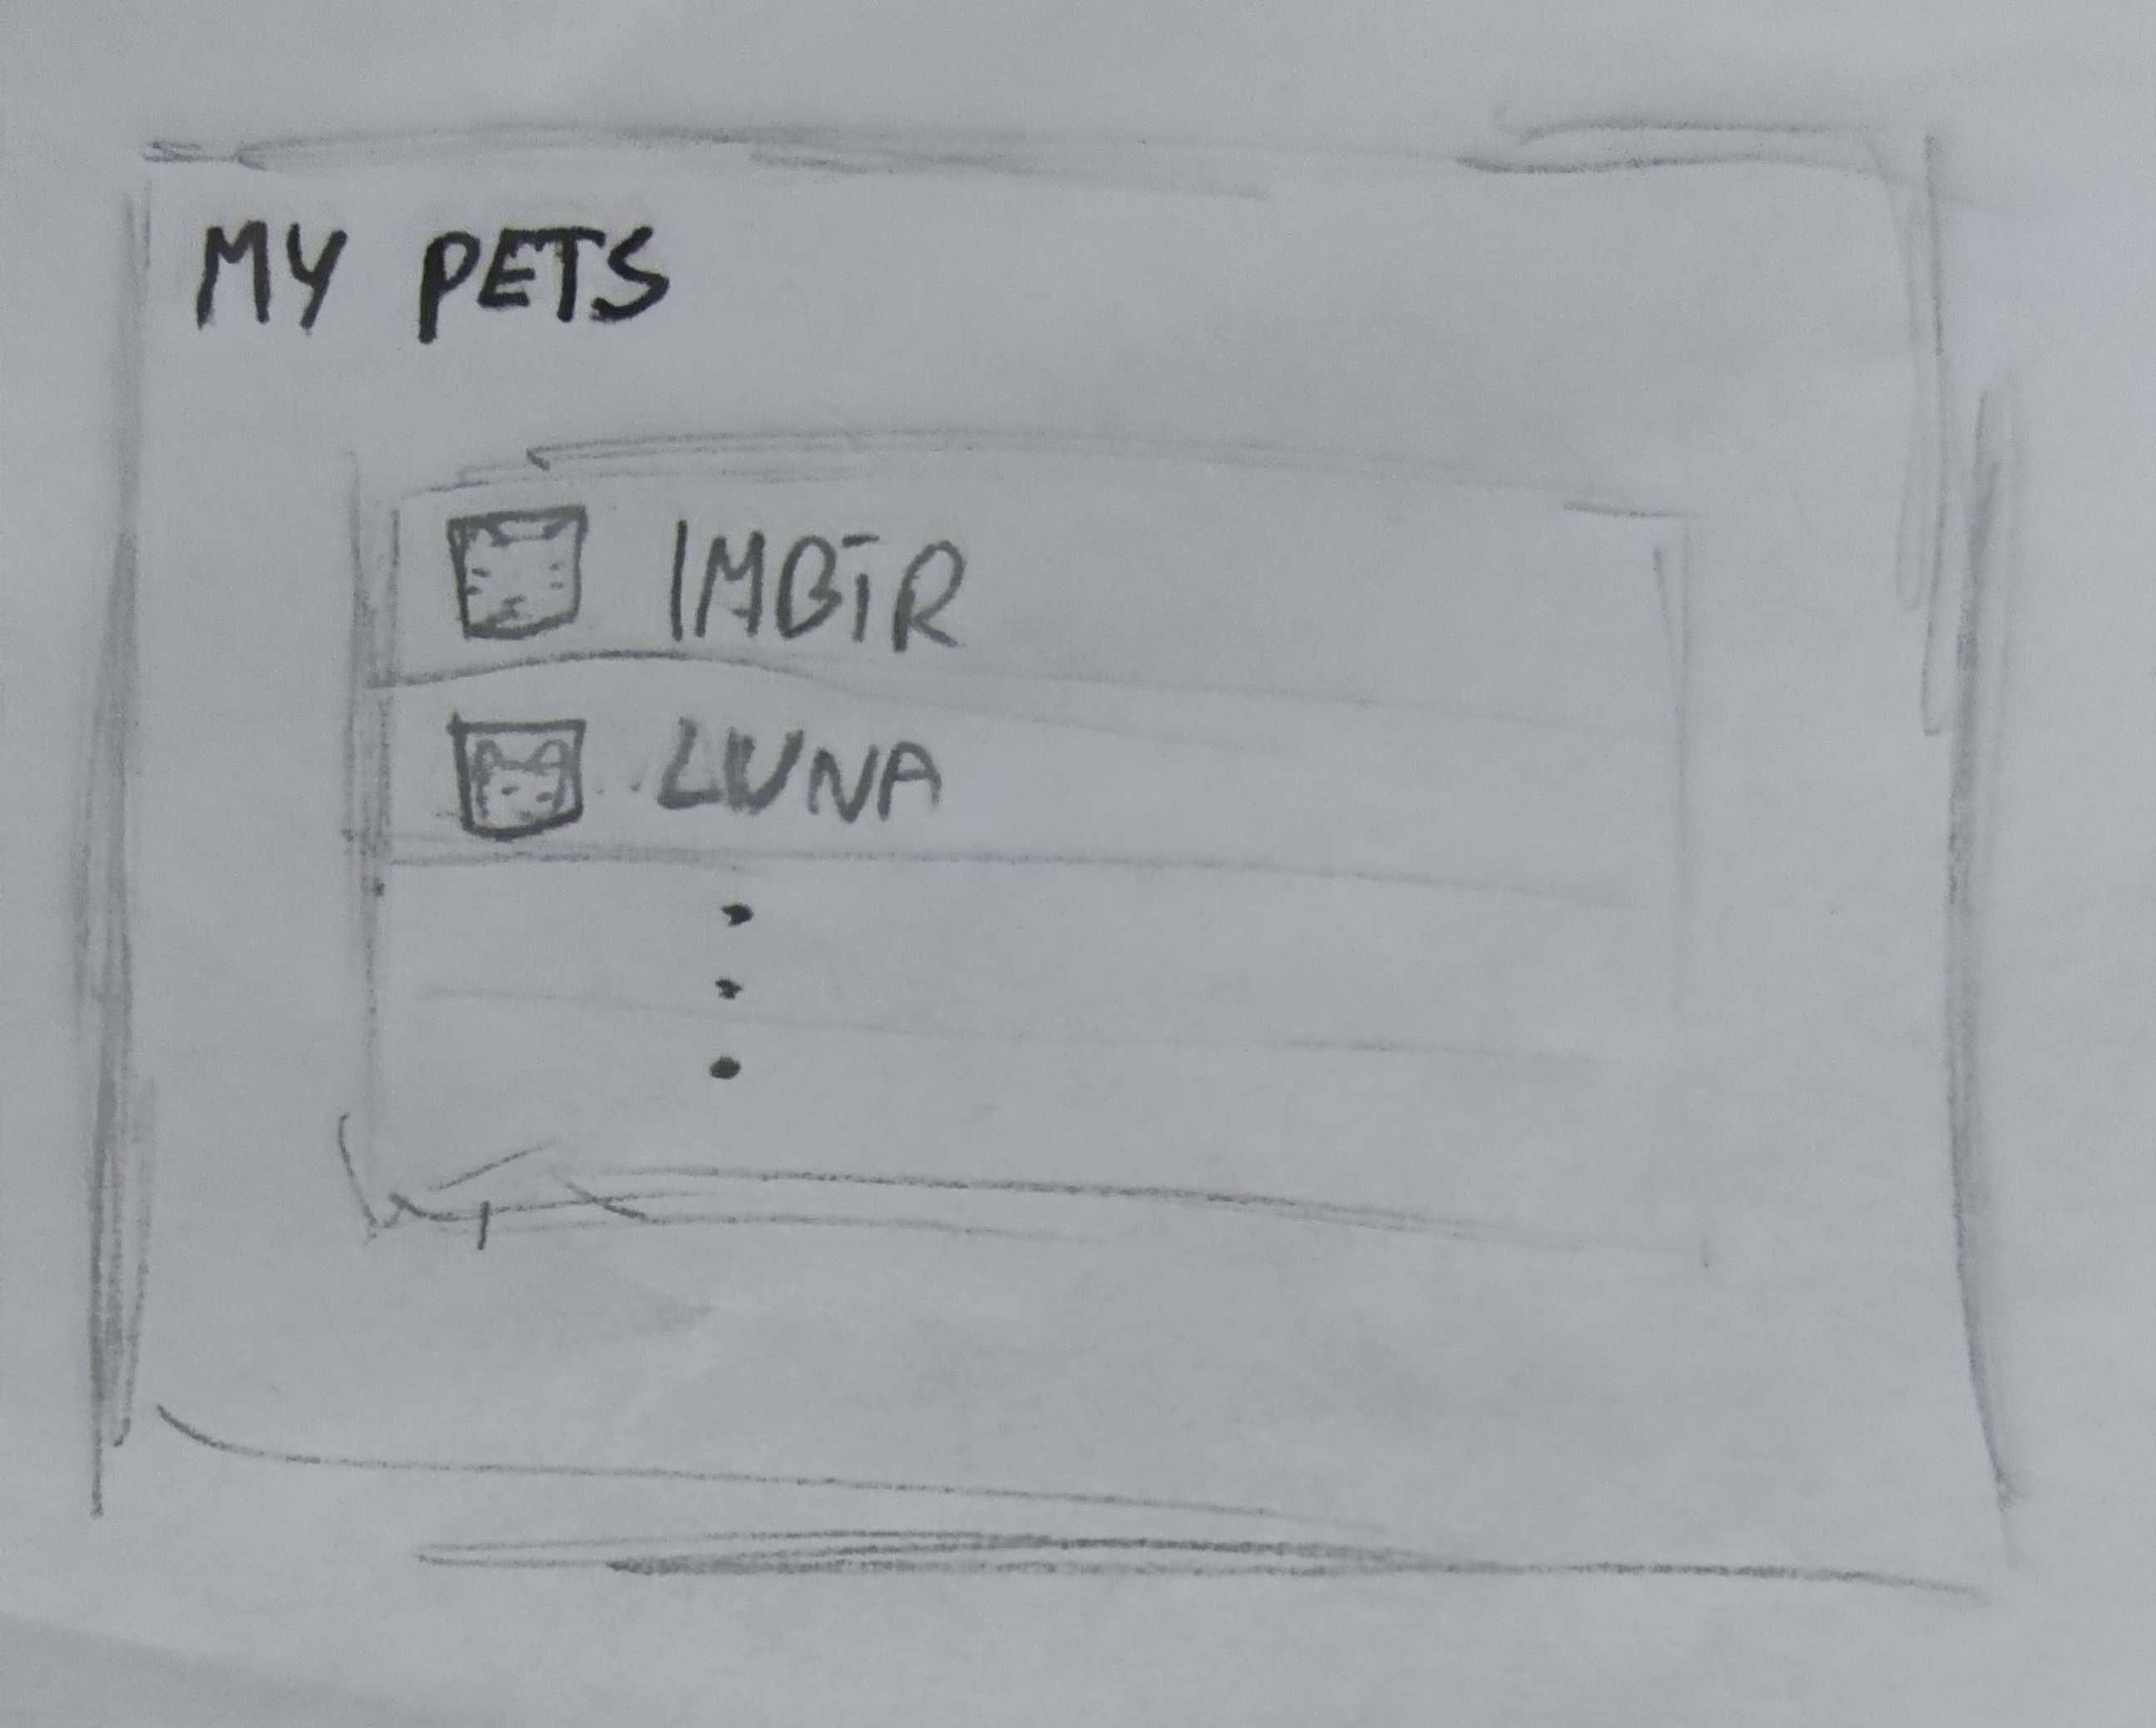 MY PETS
IMBIR
LUNA